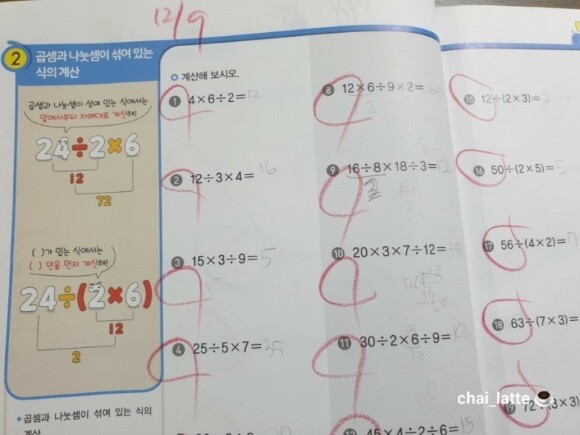 12/9
2 곱셈과 나눗셈이 섞여 있는
식의 계산
곱셈과 나눗셈이 섞여 있는 식에서는
앞에서부터 차례대로 계산해!
24÷2×6
12
72
( )가 있는 식에서는
( ) 안을 먼저 계산해!
24÷(2×6)
12
2
• 곱셈과 나눗셈이 섞여 있는 식의
계산해 보시오.
1 4×6÷2=12
2 12÷3×4=16
3 15×3÷9=5
15
4 25÷5×7=35
8 12×6÷9×2=16
9 16÷8×18÷3=12
2
10 20×3×7÷12=35
11 30÷2×6÷9=10
12 45×4÷2÷6=15
15 12÷(2×3)=2
16 50÷(2×5)=5
17 56÷(4×2)=7
18 63÷(7×3)=
19 72÷(3×3)
chai_latte